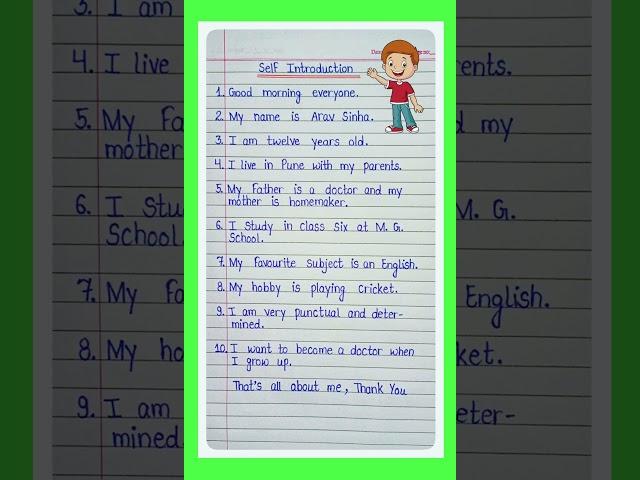 Self Introduction
1. Good morning everyone.
2. My name is Arav Sinha.
3. I am twelve years old.
4. I live in Pune with my parents.
5. My Father is a doctor and my
mother is homemaker.
6. I study in class Six at M. G.
School.
7. My Favourite subject is an English.
8. My hobby is playing Cricket.
9. I am very punctual and deter-
mined.
10. I want to become a doctor when
I grow up.
That's all about me, Thank You
3. I am
4. I live
ents.
5. My Fa
d my
mother
6. I Stu
M. G.
School.
7. My Fa
English.
8. My ho
ket.
9. I am
eter-
mined.